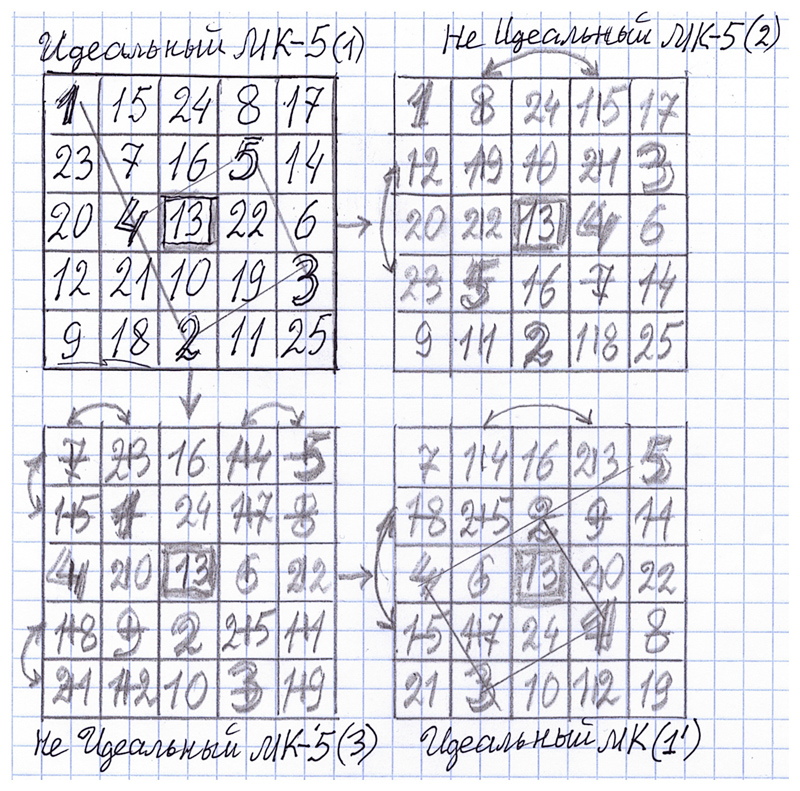 Идеальный МК-5(1)
Не Идеальный МК-5(2)
1 15 24 8 17
23 7 16 5 14
20 4 13 22 6
12 21 10 19 3
9 18 2 11 25
1 8 24 15 17
12 19 10 21 3
20 22 13 4 6
23 5 16 7 14
9 11 2 18 25
7 23 16 14 5
15 1 24 17 8
4 20 13 6 22
18 9 2 25 11
21 12 10 3 19
7 14 16 23 5
18 25 2 9 11
4 6 13 20 22
15 17 24 1 8
21 3 10 12 19
Не Идеальный МК-5(3)
Идеальный МК(1')